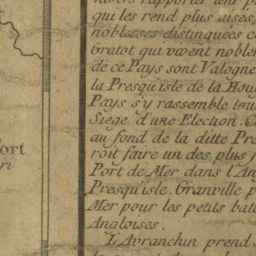 qui les rend plus aises,
noblesses distinguées c
Gratot qui vivent nobler
de ce Pays sont Valogne
la Presqu'isle de la Hou
Pays s'y rassemble tou
Siege d'une Election. C
au fond de la ditte Pre
roit faire un des plus
Port de Mer dans l'An
Presqu'isle. Granville p
Mer pour les petits bat
Angloises.
L'Avranchin prend
ort